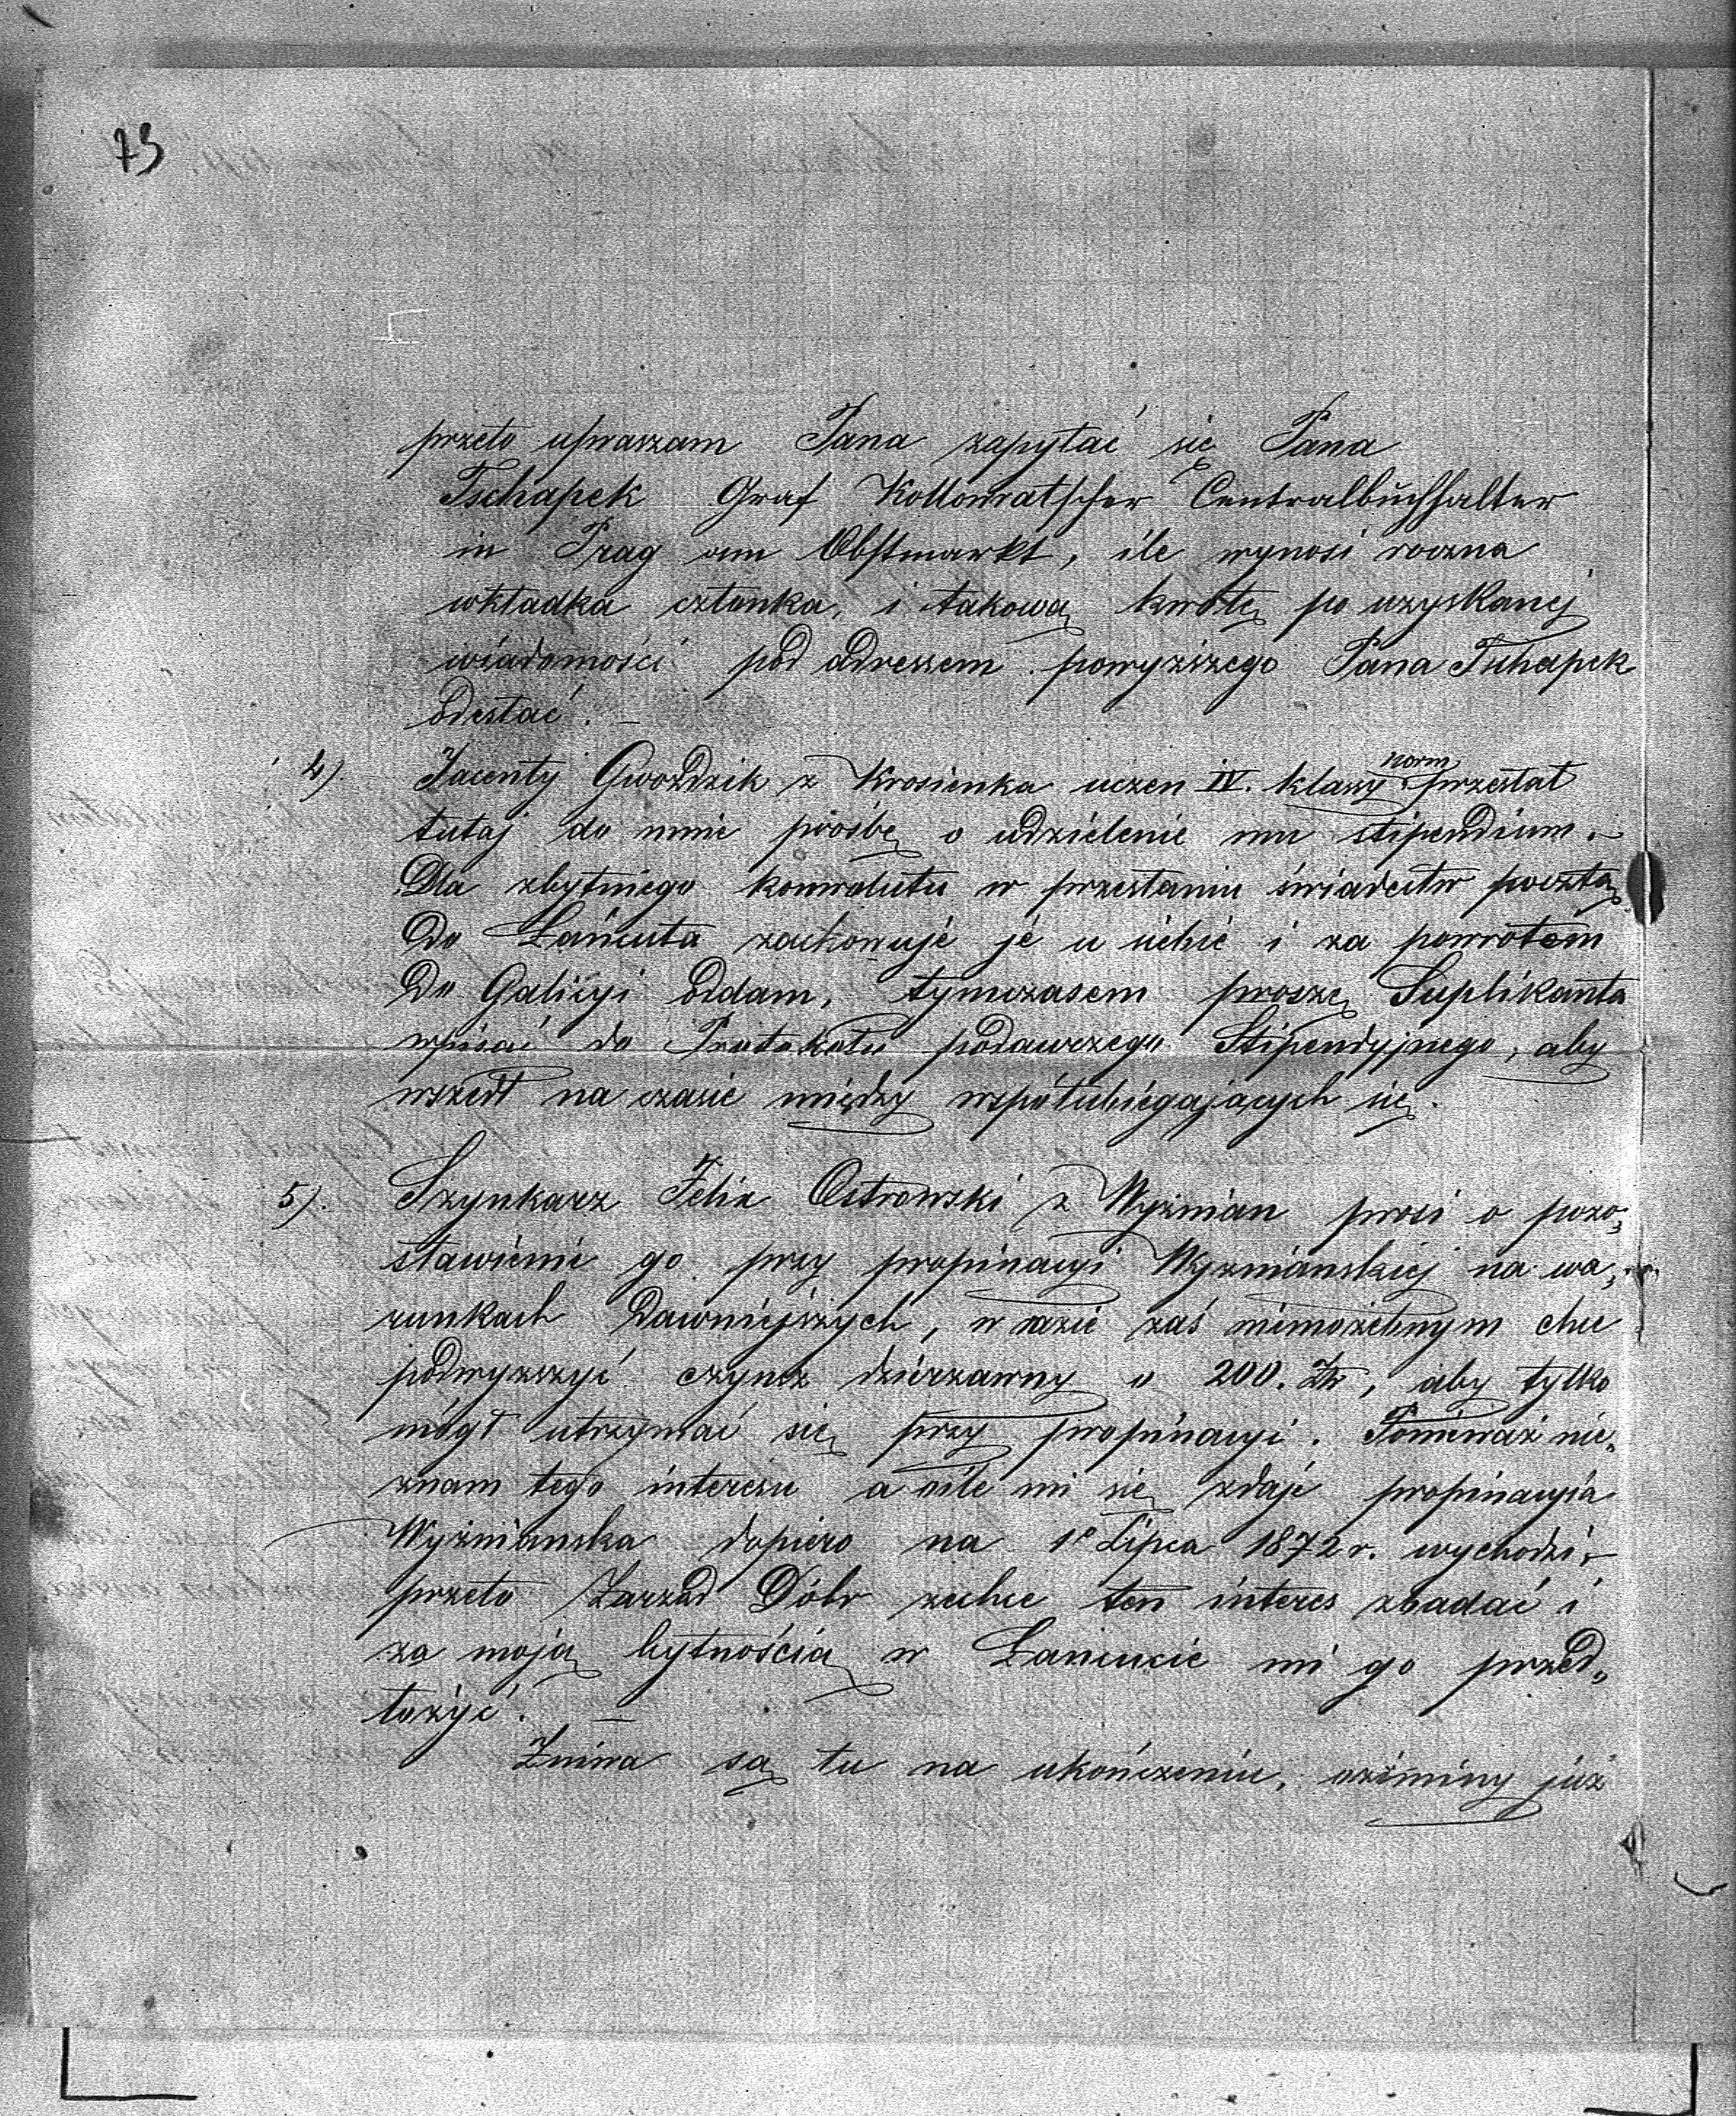 73
przeto upraszam Pana zapytać się Pana
Tschapek Graf Kollowratscher Centralbuchhalter
in Prag am Obstmarkt, ile wynosi roczna
wkładka członka, i takową kwotę po uzyskanej
wiadomości pod adressem powyższego Pana Tschapek
odesłać. —
4). Jacenty Gwoździk z Krosienka uczen IV. klassy norm przesłał
tutaj do mnie prośbę o udzielenie mu stipendium. –
Dla zbytniego konwolutu w przesłaniu świadectw pocztą
do Łańcuta zachowuje je u siebie i za powrotem
do Galizyi oddam, tymczasem proszę Suplikanta
wpisać do Protokołu podawczego Stipendyjnego, aby
wszedł na czasie między współubiegających się.
5). Szynkarz Felix Ostrowski z Wyżnian prosi o pozo„
stawienie go przy propinacyi Wyżniańskiej na wa„
runkach dawniejszych, w razie zaś niemożebnym chce
podwyższyć czynsz dzierżawny o 200. Złr, aby tylko
mógł utrzymać się przy propinacyi. Ponieważ nie„
znam tego interesu a oile mi się zdaje propinacyia
Wyżnianska dopiero na 1º Lipca 1872 r. wychodzi, –
przeto Zarząd Dóbr zechce ten interes zbadać i
za moją bytnością w Łańcucie mi go przed„
łożyć. —
Żniwa są tu na ukończeniu, oziminy już